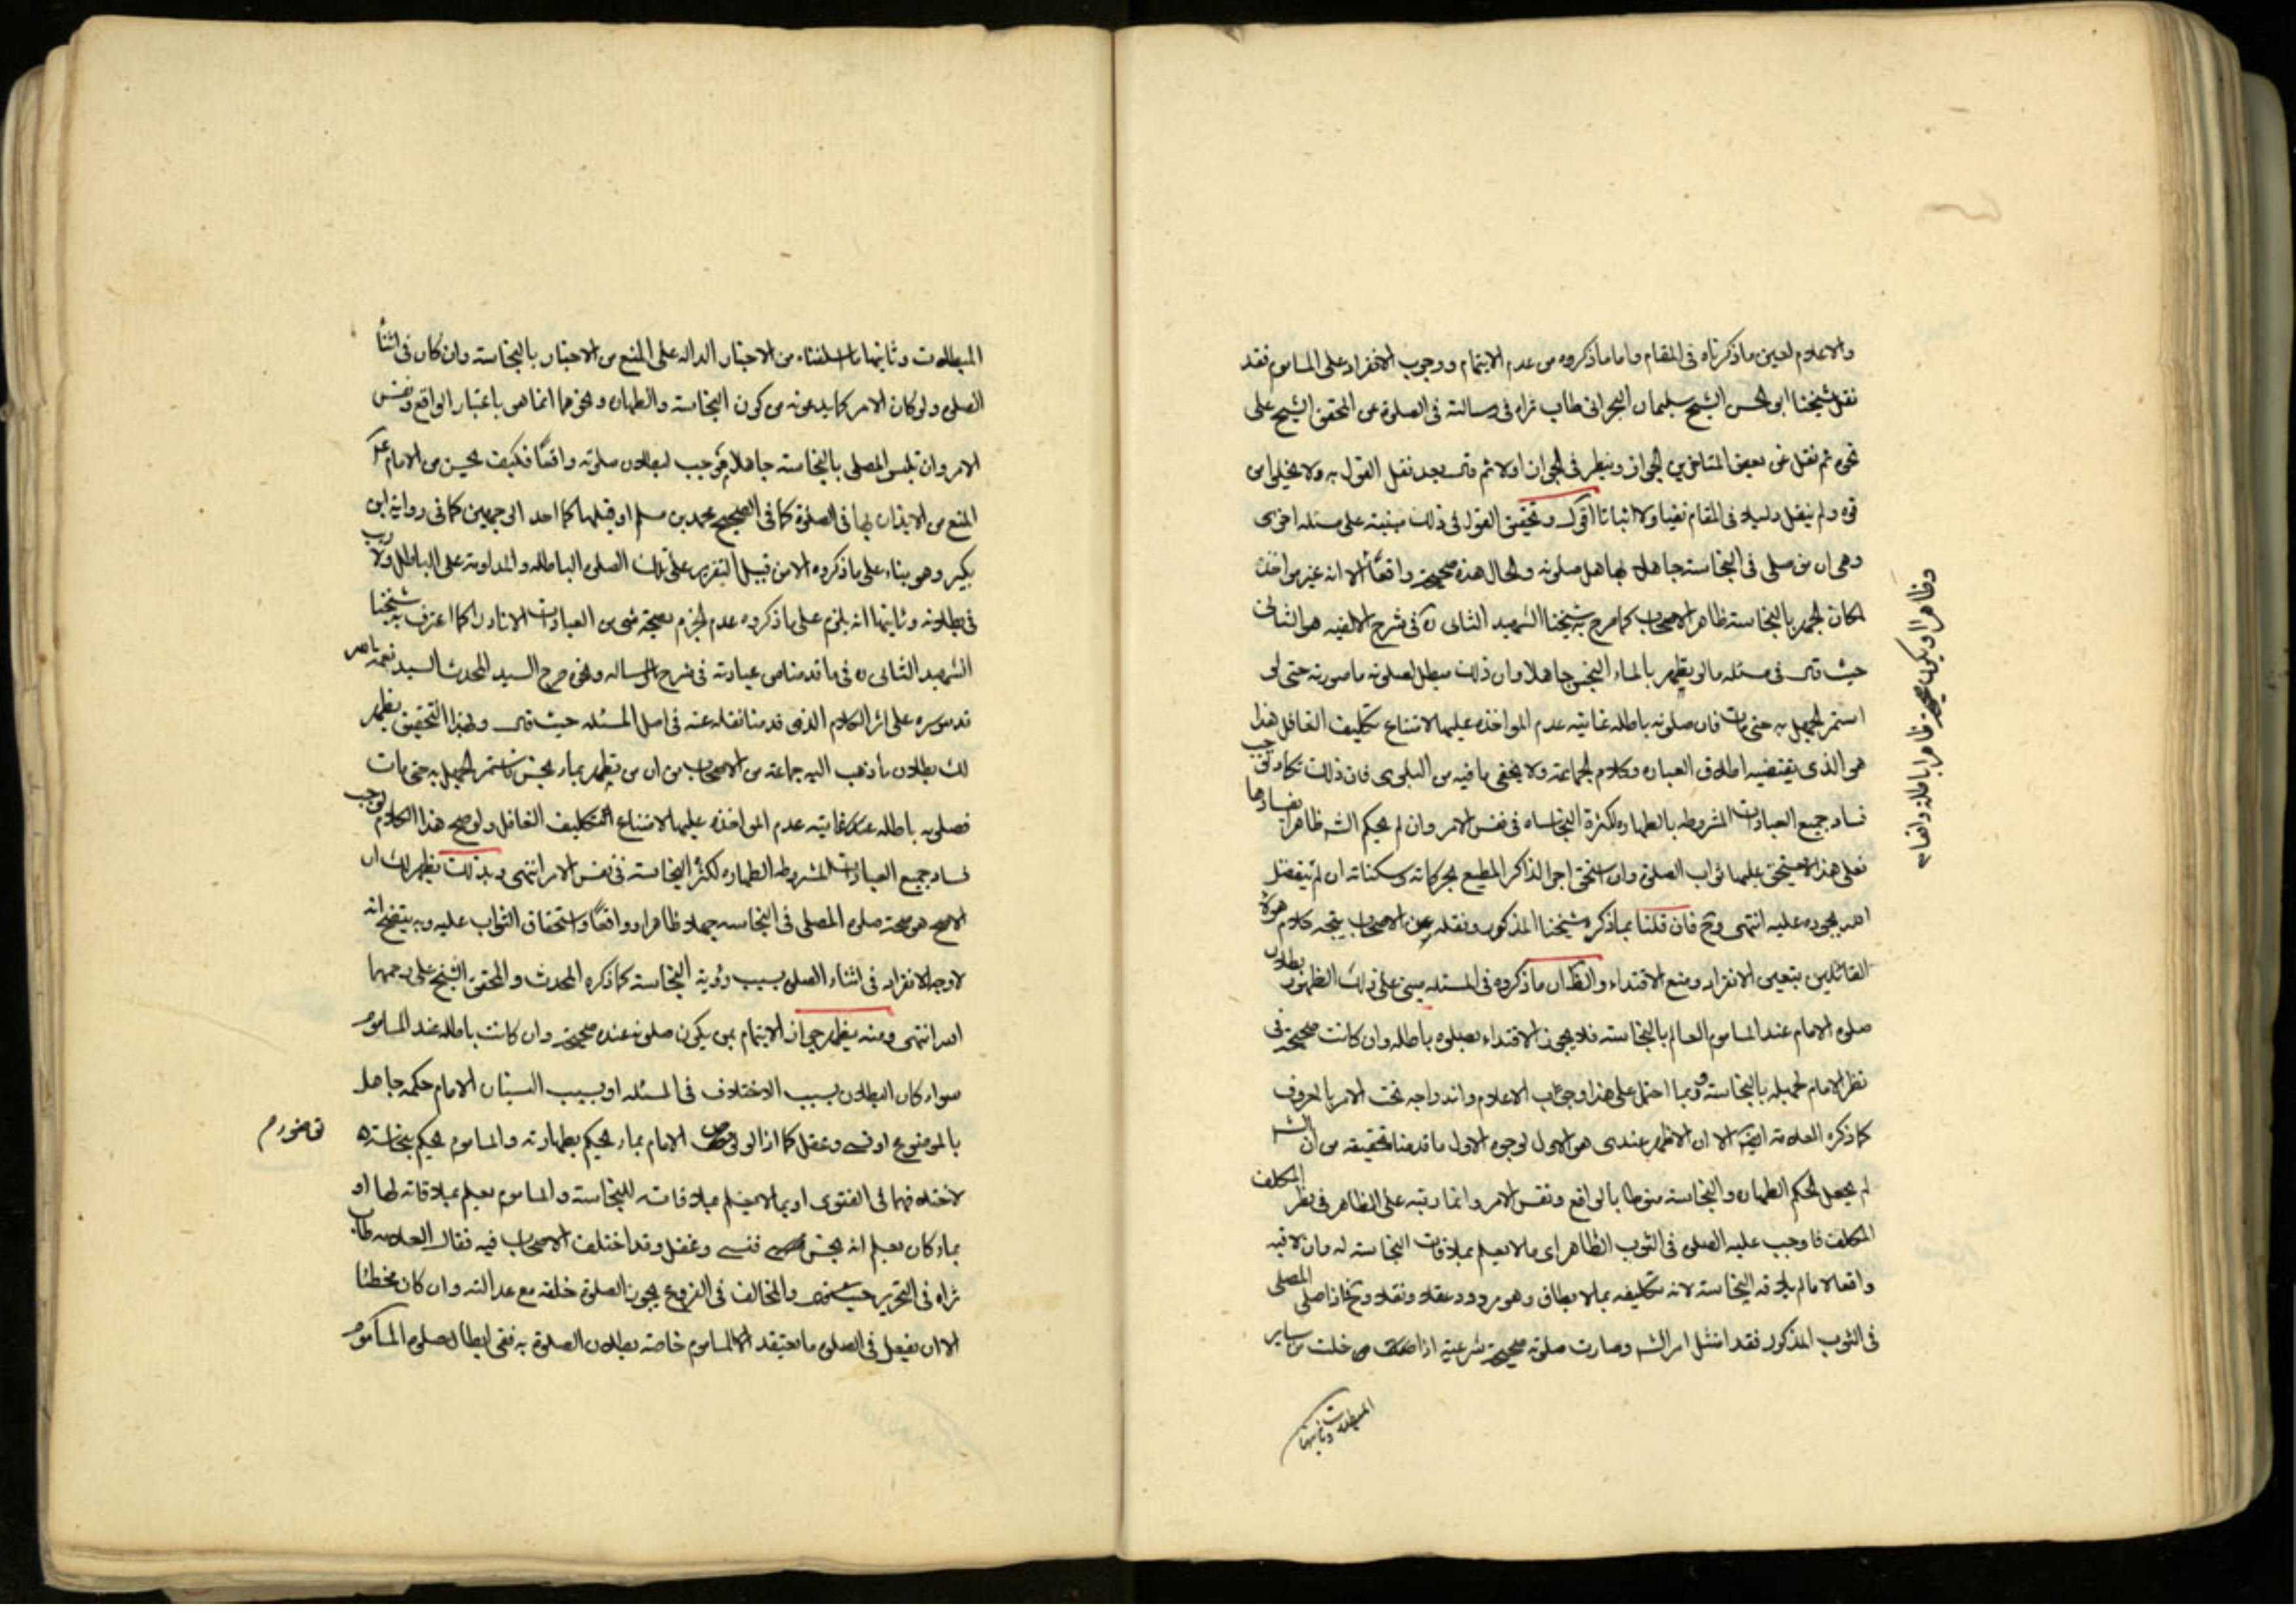 والاعلام لعين ما ذكرناه فى المقام واما ما ذكروه من عدم الايتمام ووجوب الانفراد على الماموم فقد
نقل شيخنا ابو الحسن الشيخ سليمان البحرانى طاب ثراه فى رسالته فى الصلوة عن المحقق الشيخ على
نحوه ثم نقل عن بعض المتاخرين الجواز ونظر فى الجواز اولا ثم قال بعد نقل القول به ولا يخلوا من
قوة ولم ينقل دليلا فى المقام نفيا ولا اثباتا اقول وتحقيق القول فى ذلك مبتنيه على مسئله اخرى
وهى ان من صلى فى النجاسته جاهلا بها هل صلوته والحال هذه صحيحة واقعًا الا انه غير مواخذ
لمكان الجهل بالنجاسته ظاهر الاصحاب كما صرح به شيخنا الشهيد الثانى ره فى شرح الالفيه هو الثانى
حيث قال فى مسئله ما لو تطهر بالماء النجس جاهلا وان ذلك مبطل لصلوته ما صورته حتى لو
استمر الجهل به حتى مات فان صلوته باطله غايته عدم المواخذه عليها لامتناع تكليف الغافل هذا
هو الذى يقتضيه اطلاق العباره وكلام الجماعة ولا يخفى ما فيه من البلوى فان ذلك يكاد يوجب
فساد جميع العبادات المشروطه بالطهاره لكثرة النجاساه فى نفس الامر وان لم يحكم الش ظاهرا بفسادها
فعلى هذا لا يستحق عليها ثواب الصلوة وان استحق اجر الذاكر المطيع بحركاته وسكناته ان لم يتفضل
الله بجوده عليه انتهى وح فان قلنا بما ذكره شيخنا المذكور ونقله عن الاصحاب يتجه كلام هولاء
القائلين بتعين الانفراد ومنع الاقتداء والظ ان ما ذكروه فى المسئله مبنى على ذلك لظهور بطلان
صلوة الامام عند الماموم العالم بالنجاسته فلا يجوز الاقتداء بصلوة باطله وان كانت صحيحة فى
نظر الامام لجهله بالنجاسته وربما احتمل على هذا وجوب الاعلام واندراجه تحت الامر بالمعروف
كما ذكره العلامة ايضا الا ان الاظهر عندى هو الاول لوجوه الاول ما قدمنا تحقيقه من ان الش
لم يجعل الحكم الطهاره والنجاسته منوطا بالواقع ونفس الامر وانما رتبه على الظاهر فى نظر المكلف
المكلف فاوجب عليه الصلوة فى الثوب الظاهر اى ما لا يعلم بملاقات النجاسته له وان لاقيه
واقعا لا ما لم تلاقه النجاسته لانه تكليفه بما لا يطاق وهو مردود عقلا ونقلا وح فاذا صلى المصلى
فى الثوب المذكور فقد امتثل امر الش وصارت صلوته صحيحة شرعية اذا خلت من ساير
المبطلات وثانيها
وظاهرا او يكون صحيحة ظاهرا باطلة واقعا
المبطلات وثانيها من الاخبار الداله على المنع من الاخبار بالنجاسته وان كان فى اثنا
الصلوة ولو كان الامر كما يدعونه من كون النجاسته والطهاره ونحوهما انما هى باعتبار الواقع ونفس
الامر وان تلبس المصلى بالنجاسته جاهلا موجب لبطلان صلوته واقعًا فكيف يحسن من الامام
المنع من الايذان بها فى الصلوة كما فى الصحيح محمد بن مسلم او قبلها كما احد الوجهين كما فى رواية ابن
بكير وهو بناء على ما ذكروه الا من قبيل التقرير على تلك الصلوة الباطله والمداومة على الباطل ولا ريب
فى بطلانه وثالثها انه يلزم على ما ذكروه عدم الجزم بصحة شى من العبادات الا نادرا كما اعترف به شيخنا
الشهيد الثانى ره فى ما قدمنا من عبارته فى شرح الرساله ونحوه صرح السيد المحدث السيد نعمه الله
قدس سره على اثر الكلام الذى قدمنا نقله عنه فى اصل المسئله حيث قال وبهذا التحقيق يظهر
لك بطلان ما ذهب اليه جماعة من الاصحاب من ان من تطهر بماء نجس فاستمر الجهل به حتى مات
فصلوته باطله غايته عدم المواخذه عليها لامتناع تكليف الغافل ولو صح هذا الكلام لوجب
فساد جميع العبادات المشروطه الطهاره لكثرة النجاسته فى نفس الامر انتهى وبذلك يظهر لك ان
الاصح هو صحة صلوة المصلى فى النجاسه جهلا ظاهرا وواقعًا واستحقاق الثواب عليه وبه يتضح انه
لا وجه لانفراد فى اثناء الصلوة بسبب رؤية النجاسته كما ذكره المحدث والمحقق الشيخ على رحمهما
الله انتهى ومنه يظهر جواز الايتمام بمن يكون صلوته عنده صحيحة وان كانت باطله عند الماموم
سواء كان البطلان بسبب الاختلاف فى المسئله او بسبب النسيان الامام حكمه جاهل
بالموضوع او نسى وغفل كما اذا لو توضى الامام بماء يحكم بطهارته والماموم يحكم بنجاسته
لاختلافهما فى الفتوى او بما لا يعلم ملاقاته للنجاسته والماموم يعلم بملاقاته لها او
بماء كان يعلم انه نجس فنسى وغفل وقد اختلف الاصحاب فيه فقال العلامه طاب
ثراه فى التحرير والمخالف فى الفروع يجوز الصلوة خلفه مع عدالته وان كان مخطئا
الا ان يفعل فى الصلوة ما يعتقد الماموم خاصة بطلان الصلوة به ففى ابطال صلوة الماموم